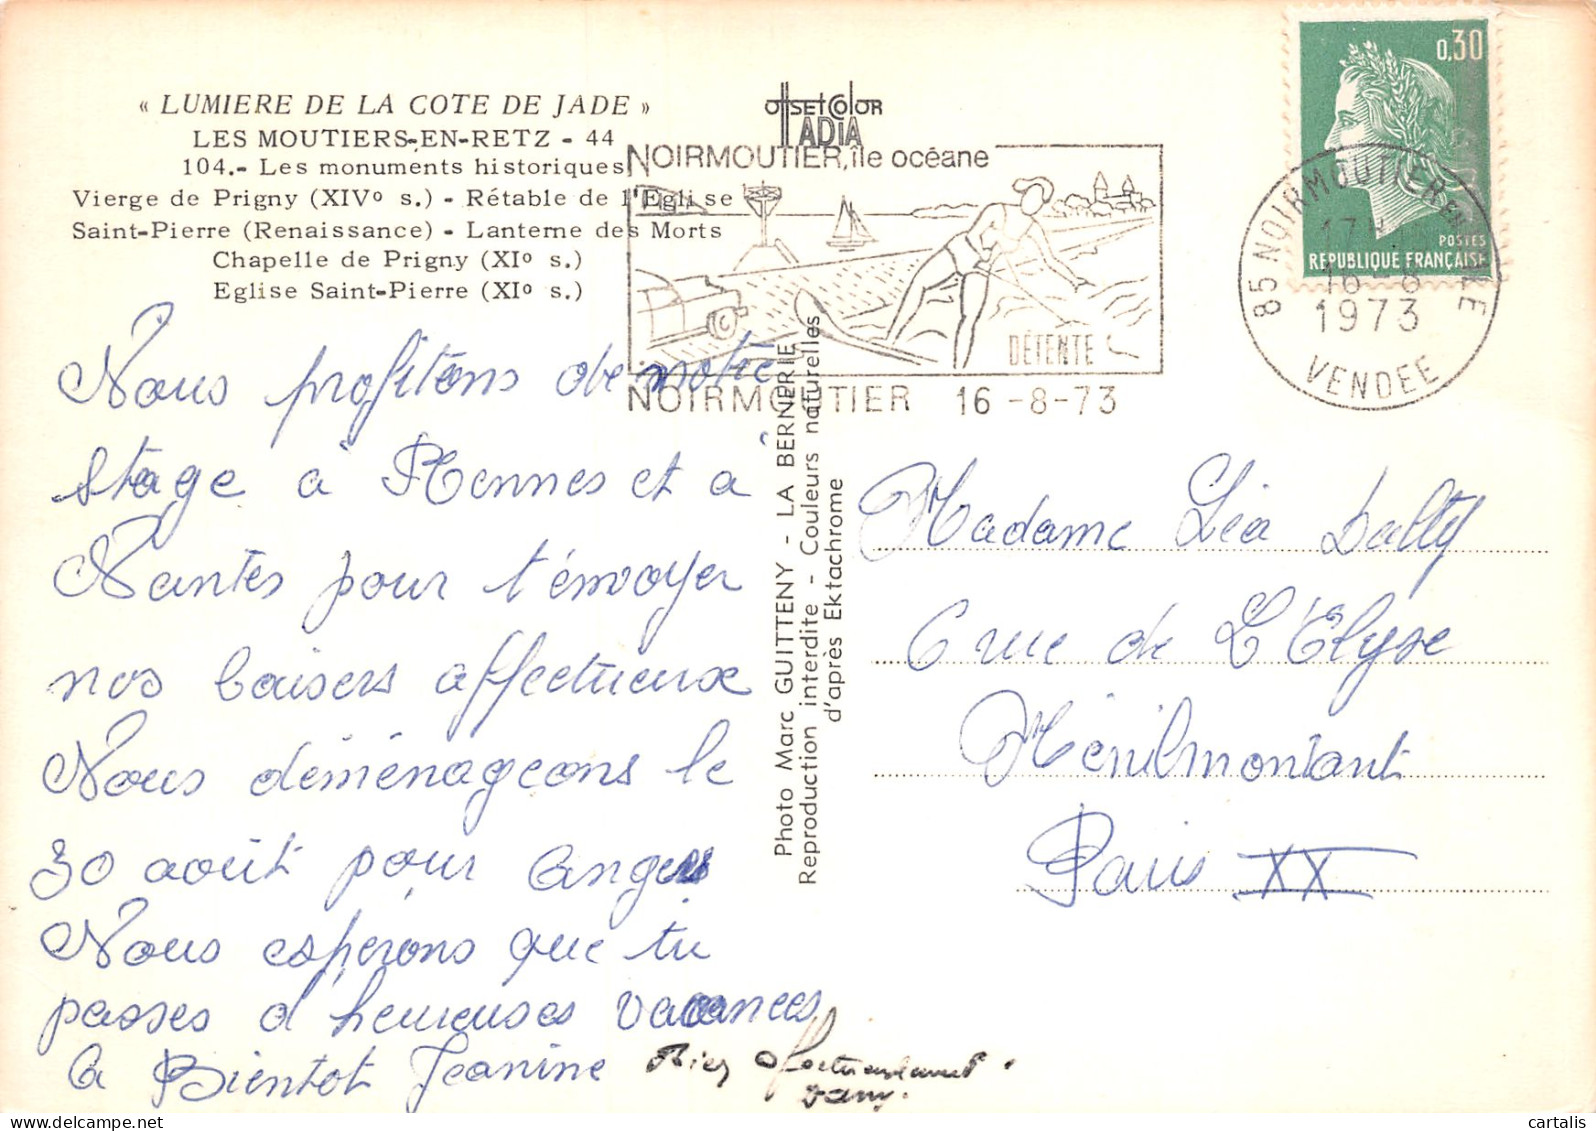 « LUMIERE DE LA COTE DE JADE »
LES MOUTIERS-EN-RETZ - 44
104.- Les monuments historiques
Vierge de Prigny (XIVº s.) - Rétable de l'Eglise
Saint-Pierre (Renaissance) - Lanterne des Morts
Chapelle de Prigny (XIº s.)
Eglise Saint-Pierre (XIº s.)
offSETCOlOR
IADIA
NOIRMOUTIER, île océane
DÉTENTE
NOIRMOUTIER 16-8-73
0,30
POSTES
REPUBLIQUE FRANÇAISE
85 NOIRMOUTIER EN L'ILE
17H
16-8
1973
VENDEE
Nous profitons de notre
stage à Rennes et à
Nantes pour t'envoyer
nos baisers affectueux
Nous déménageons le
30 août pour Angers
Nous espérons que tu
passes d'heureuses vacances
a Bientot Jeanine
Bien affectueusement
Dany.
Photo Marc GUITTENY - LA BERNERIE
Reproduction interdite - Couleurs naturelles
d'après Ektachrome
Madame Léa Dalty
6 rue de L'Elyse
Ménilmontant
Paris XX
cartalis
cartalis.delcampe.net